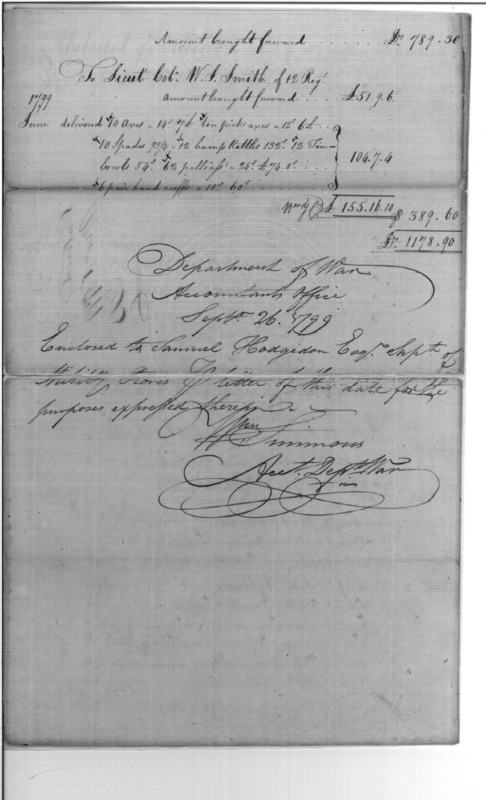 Amount brought forward . . . . . . Dr. 789-30
To Lieut Col. W. S. Smith of 12 Regt
1799 amount brought forward . . . . £51.9.6.
June. delivered 70 Axes - 14s 7d ten pick axes - 12s 6d
10 Spades 93/4 - 12 Camp Kettles 132s. 12 Tin
bowls 54s. 62 palliass - 24s. £74.8s. 104.7-4
6 pair hand cuffs - 10s. 60s
£ 155.16.10 $ 389.60
Dr. 1178.90
Department of War
Accountants Office
Septr 26. 1799
Enclosed to Samuel Hodgsdon Esqr. Supt. of
Military Stores letter of this date for the
purposes expressed therein.
Wm Simmons
Acct. Dept. War